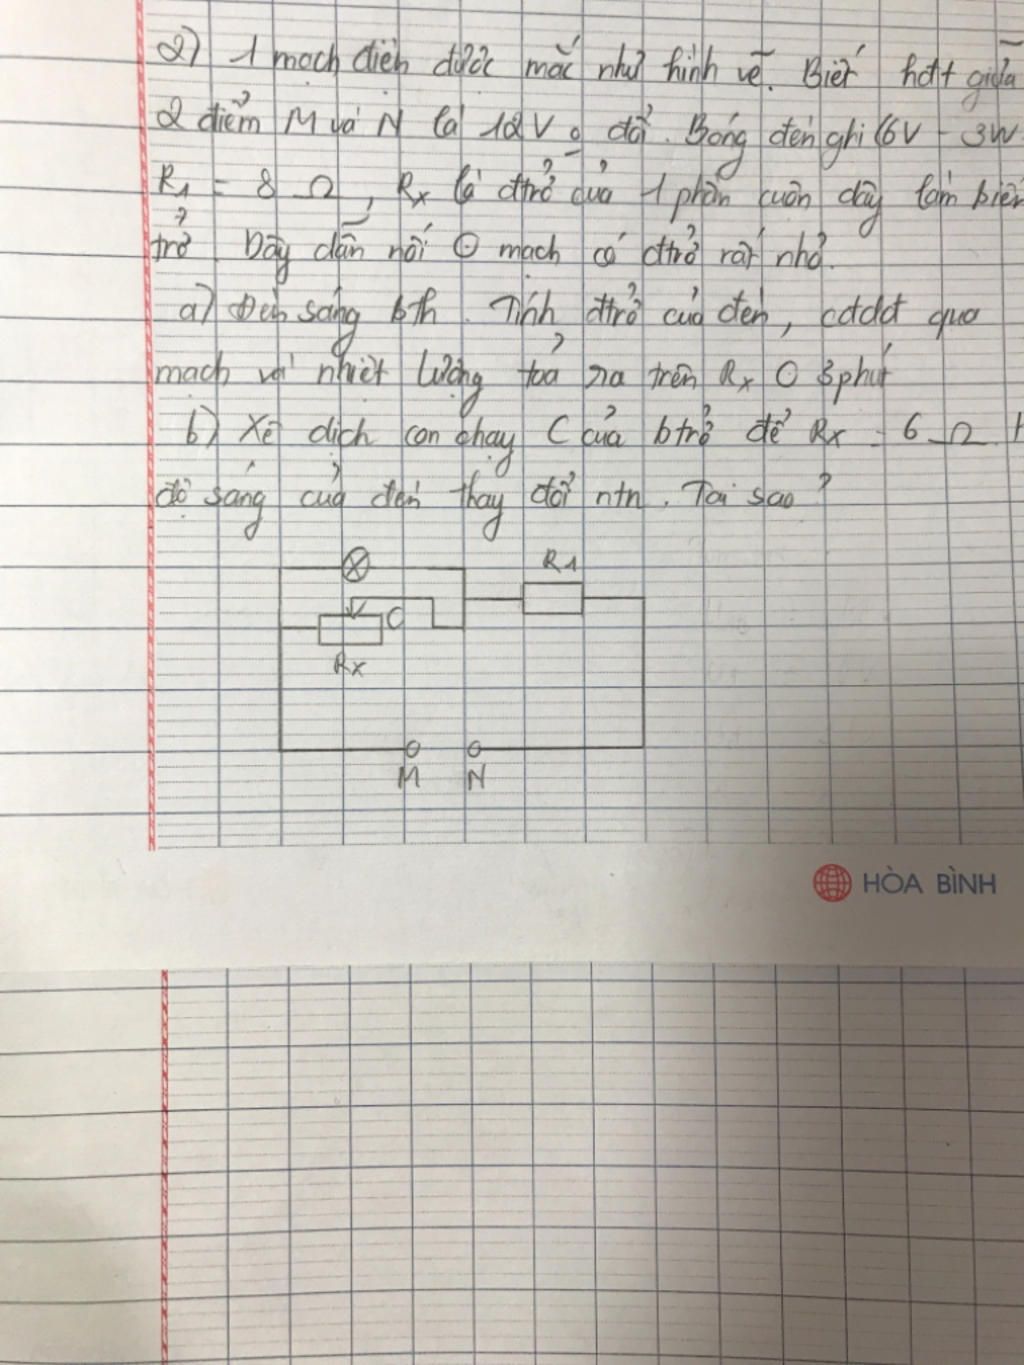 2) 1 mạch điện được mắc như hình vẽ. Biết hđt giữa
2 điểm M và N là 12V o đổi. Bóng đèn ghi (6V - 3W
R1 = 8 Ω, Rx là đtrở của 1 phần cuộn dây làm biến
trở. Dây dẫn nối ⊙ mạch có đtrở rất nhỏ.
a) Đèn sáng bth. Tính đtrở của đèn, cđdđ qua
mạch và nhiệt lượng tỏa ra trên Rx O 3 phút
b) Xê dịch con chạy C của btrở để Rx = 6 Ω
độ sáng của đèn thay đổi ntn. Tại sao?
R1
C
Rx
M N
HÒA BÌNH